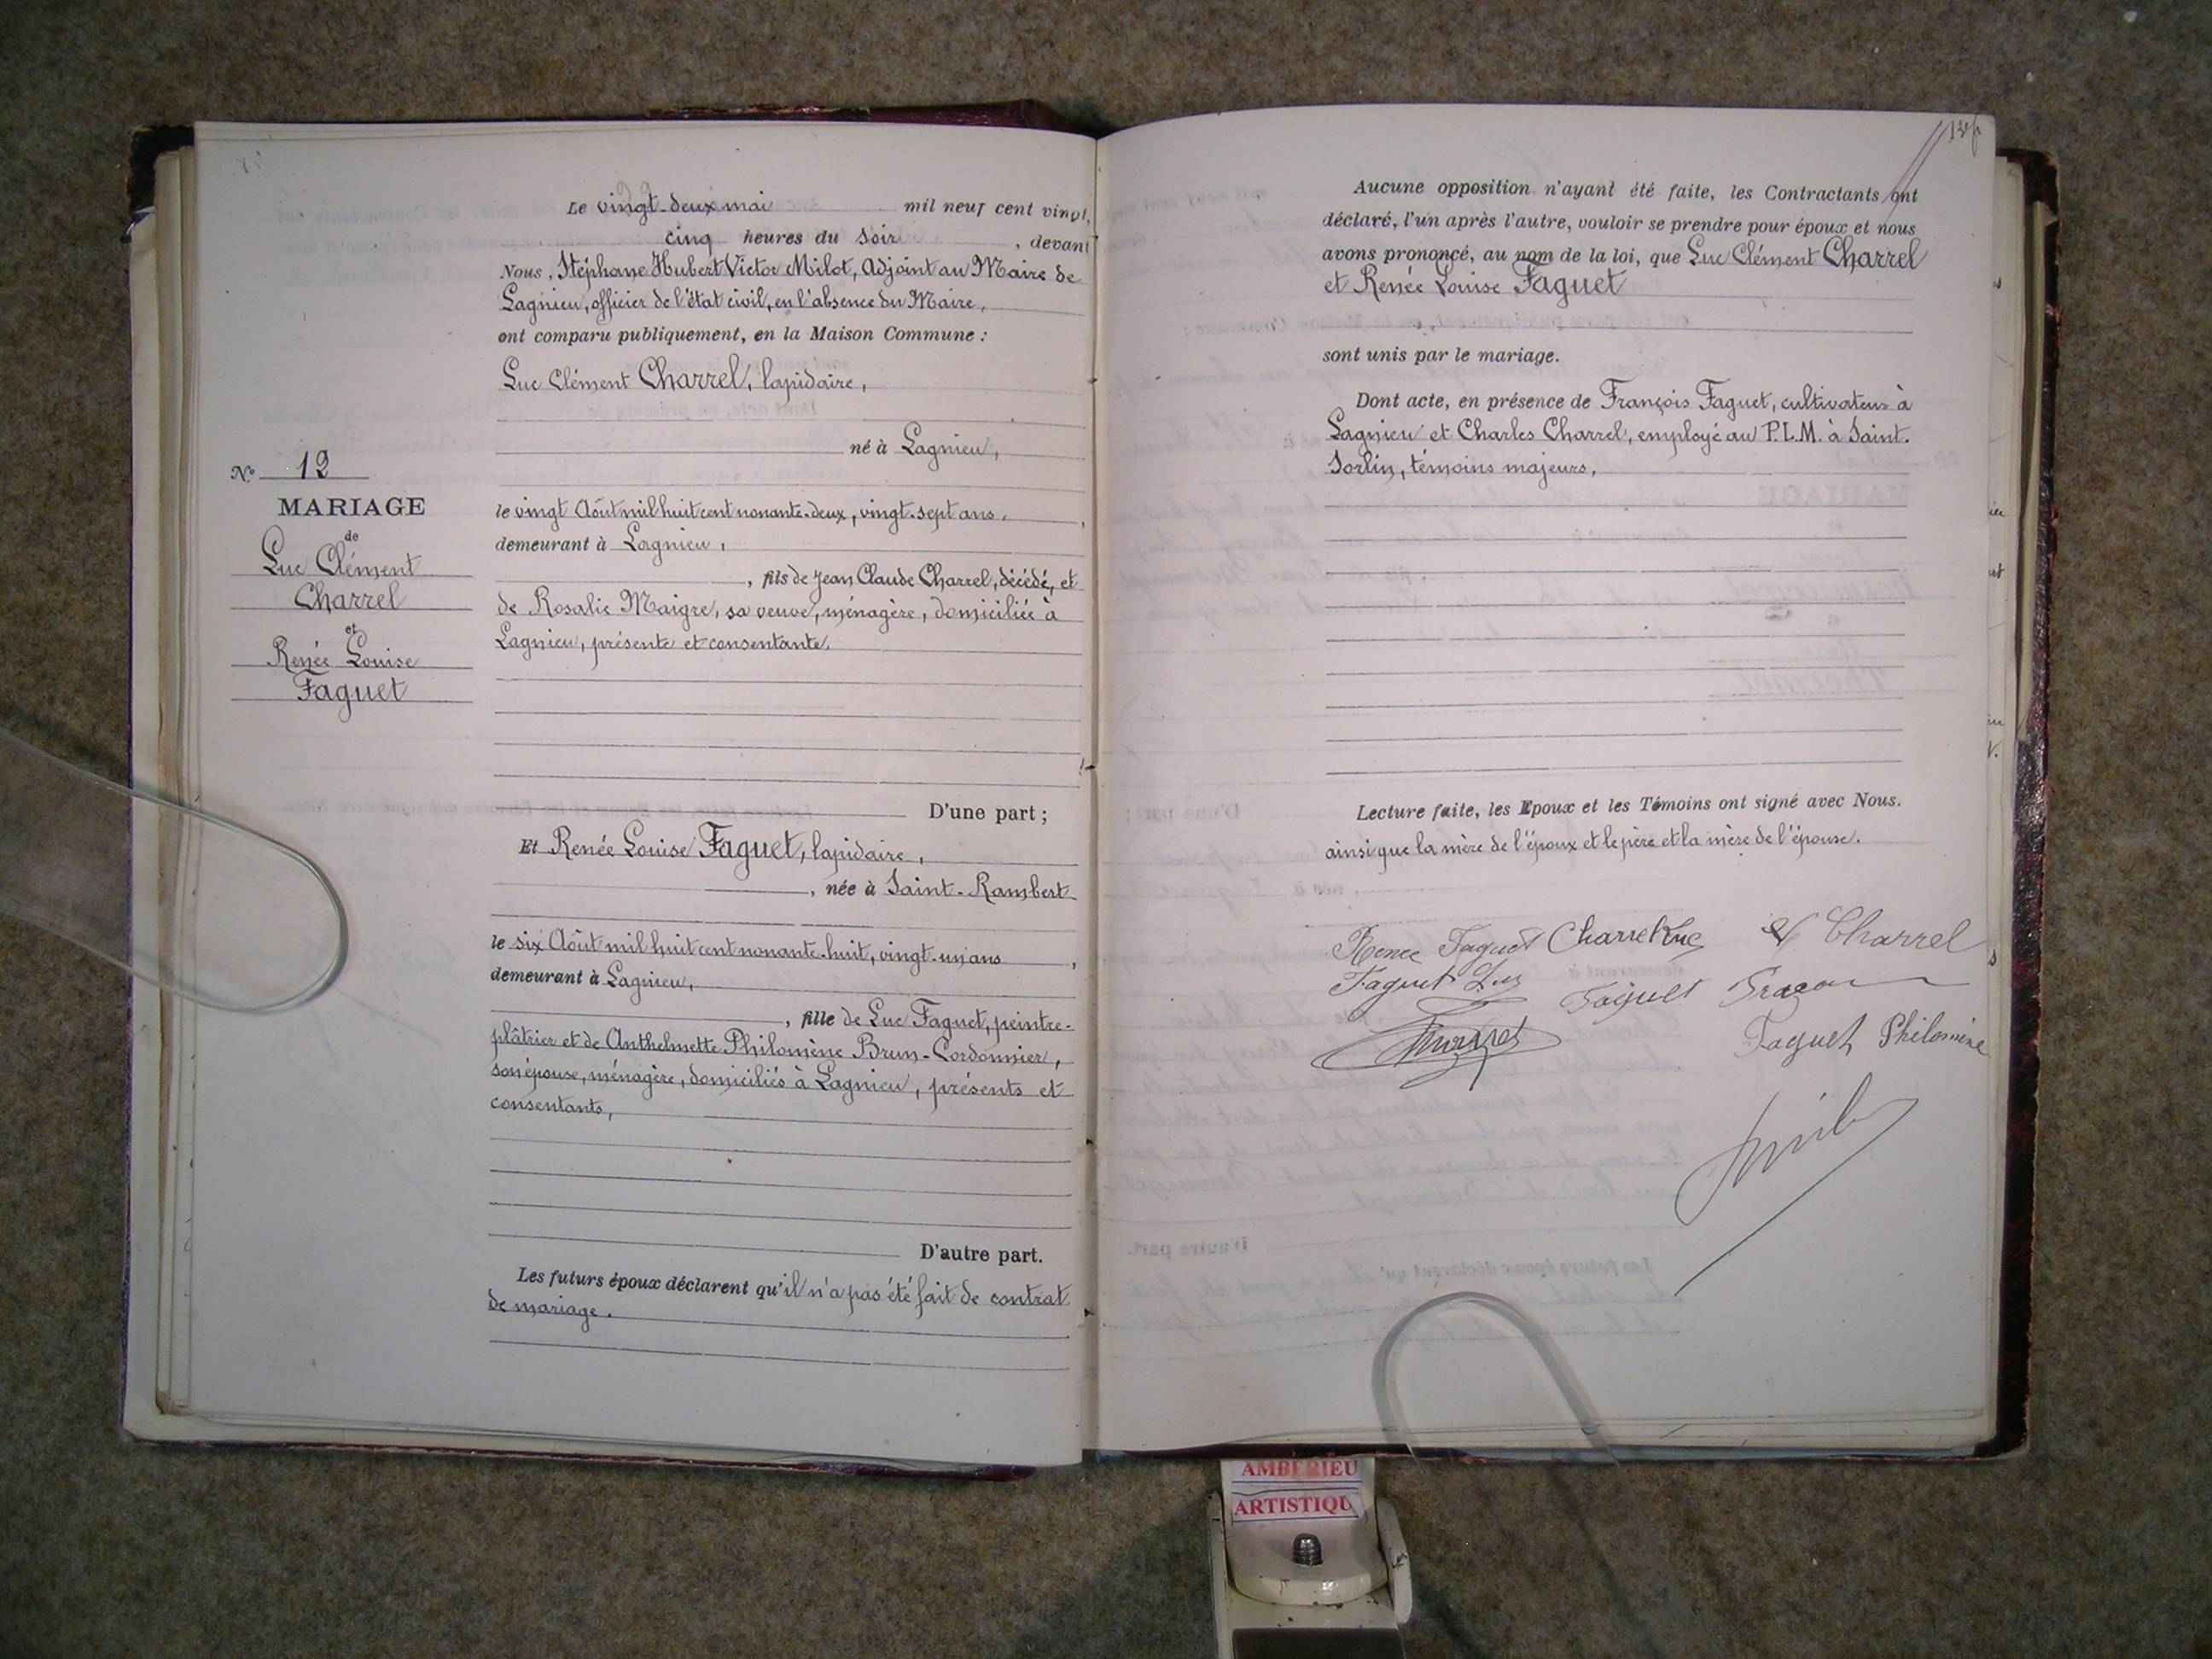 Le vingt-deux mai mil neuf cent vingt,
cinq heures du soir, devant
Nous, Stéphane Hubert Victor Milot, Adjoint au Maire de
Lagnieu, officier de l'état civil, en l'absence du Maire,
ont comparu publiquement, en la Maison Commune :
Luc Clément Charrel, lapidaire,
né à Lagnieu,
N° 12
MARIAGE
de
Luc Clément
Charrel
et
Renée Louise
Faguet
le vingt Août mil huit cent nonante-deux, vingt-sept ans,
demeurant à Lagnieu,
, fils de Jean Claude Charrel, décédé, et
de Rosalie Maigre, sa veuve, ménagère, domiciliée à
Lagnieu, présente et consentante.
D'une part ;
Et Renée Louise Faguet, lapidaire,
, née à Saint-Rambert
le six Août mil huit cent nonante-huit, vingt-un ans,
demeurant à Lagnieu,
, fille de Luc Faguet, peintre-
plâtrier et de Anthelmette Philomène Brun-Cordonnier,
son épouse, ménagère, domiciliés à Lagnieu, présents et
consentants,
D'autre part.
Les futurs époux déclarent qu'il n'a pas été fait de contrat
de mariage.
Aucune opposition n'ayant été faite, les Contractants ont
déclaré, l'un après l'autre, vouloir se prendre pour époux et nous
avons prononcé, au nom de la loi, que Luc Clément Charrel
et Renée Louise Faguet
sont unis par le mariage.
Dont acte, en présence de François Faguet, cultivateur à
Lagnieu et Charles Charrel, employé au P.L.M. à Saint-
Sorlin, témoins majeurs,
Lecture faite, les Epoux et les Témoins ont signé avec Nous.
ainsi que la mère de l'époux et le père et la mère de l'épouse.
Renee Faguet Charrel Luc Charrel
Faguet Luc Faguet
Faguet Philomène
AMBERIEU
ARTISTIQU